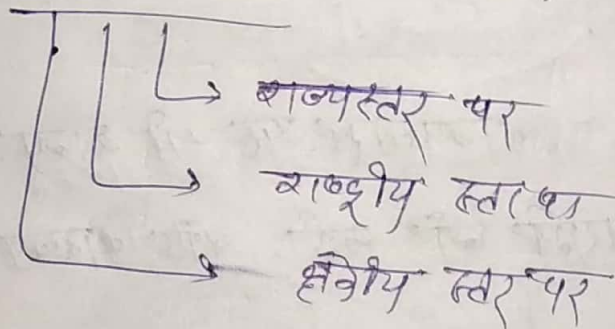 राज्यस्तर पर
राष्ट्रीय स्तर पर
क्षेत्रीय स्तर पर